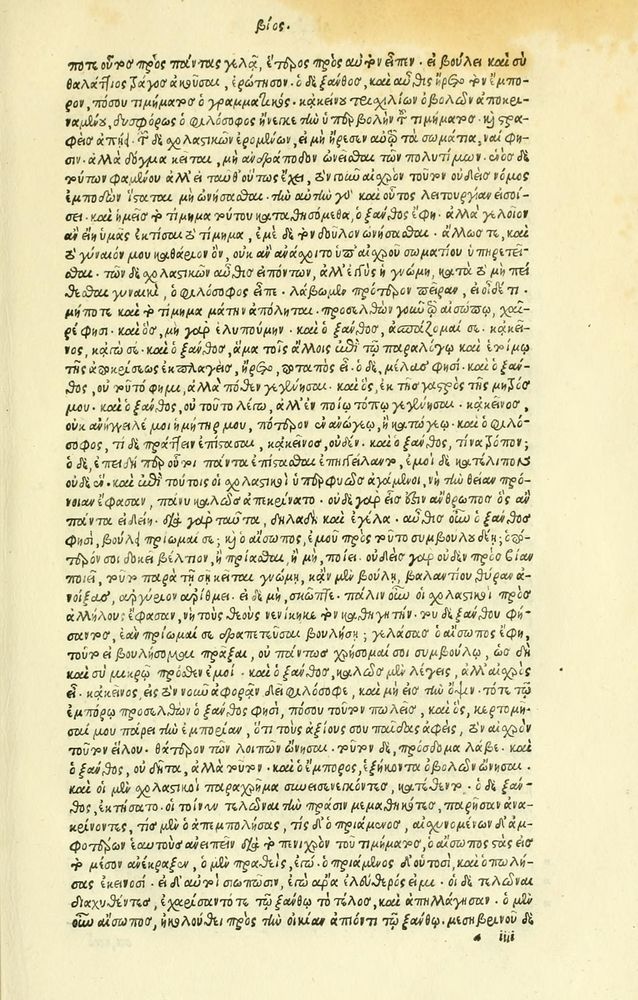 βίος.
ποτε οὗτος πρὸς πάντας γελᾷ, ἕτερος πρὸς αὐτὸν εἶπεν. εἰ βούλει καὶ σὺ
θαλάττιος τράγος ἀκοῦσαι, ἐρώτησον. ὁ δὲ ξάνθος, καὶ αὖθις ἤρετο τὸν ἔμπο-
ρον, πόσου τιμήματος ὁ γραμματικός. κἀκείνου τρισχιλίων ὀβολῶν ἀποκρι-
ναμένου, δυσφόρως ὁ φιλόσοφος ἤνεγκε τὴν ὑπερβολὴν τοῦ τιμήματος. καὶ στρα-
φεὶς ἀπῄει. τῶν δὲ σχολαστικῶν ἐρομένων, εἰ μὴ ἤρεσεν αὐτῷ τὰ σωμάτια, ναὶ φη-
σιν. ἀλλὰ δόγμα κεῖται, μὴ ἀνδράποδον ὠνεῖσθαι τῶν πολυτίμων. ἑνὸς δὲ
τούτων φαμένου ἀλλ' εἰ ταῦθ' οὕτως ἔχει, τὸν γοῦν αἰσχρὸν τοῦτον οὐδεὶς νόμος
ἐμποδὼν ἵσταται μὴ ὠνήσασθαι. τὴν αὐτὴν γὰρ καὶ οὗτος λειτουργίαν εἰσοί-
σει. καὶ ἡμεῖς τὸ τίμημα τούτου καταθησόμεθα, ὁ ξάνθος ἔφη. ἀλλὰ γελοῖον
ἂν εἴη ὑμᾶς ἐκτίσαι τὸ τίμημα, ἐμὲ δὲ τὸν δοῦλον ὠνήσασθαι. ἄλλως τε, καὶ
τὸ γύναιόν μου καθάριον ὂν, οὐκ ἂν ἀνάσχοιτο ὑπ' αἰσχροῦ σωματίου ὑπηρετεῖ-
σθαι. τῶν δὲ σχολαστικῶν αὖθις εἰπόντων, ἀλλ' ἐγγὺς ἡ γνώμη, κατὰ τὸ μὴ πεί
θεσθαι γυναικὶ, ὁ φιλόσοφος εἶπε. λάβωμεν πρότερον πεῖραν, εἰ οἶδέ τι.
μήποτε καὶ τὸ τίμημα μάτην ἀπόληται. προσελθὼν γοῦν τῷ αἰσώπῳ, χαῖ-
ρε φησι. καὶ ὃς, μὴ γὰρ ἐλυπούμην. καὶ ὁ ξάνθος, ἀσπάζομαί σε. κἀκεῖ-
νος, κἀγώ σε. καὶ ὁ ξάνθος, ἅμα τοῖς ἄλλοις ἐπὶ τῷ παραλόγῳ καὶ ἑτοίμῳ
τῆς ἀποκρίσεως ἐκπλαγεὶς, ἤρετο, ποταπὸς εἶ. ὁ δὲ, μέλας φησί. καὶ ὁ ξάν-
θος, οὐ τοῦτό φημι, ἀλλὰ πόθεν γεγέννησαι. καὶ ὃς, ἐκ τῆς γαστρὸς τῆς μητρός
μου. καὶ ὁ ξάνθος, οὐ τοῦτο λέγω, ἀλλ' ἐν ποίῳ τόπῳ γεγέννησαι. κἀκεῖνος,
οὐκ ἀνήγγειλέ μοι ἡ μήτηρ μου, πότερον ἐν ἀνώγεῳ, ἢ κατώγεῳ. καὶ ὁ φιλό-
σοφος, τί δὲ πράττειν ἐπίστασαι, κἀκεῖνος, οὐδέν. καὶ ὁ ξάνθος, τίνα τρόπον;
ὁ δὲ, ἐπειδήπερ οὗτοι πάντα ἐπίστασθαι ἐπηγγείλαντο, ἐμοὶ δὲ κατέλιπον
οὐδὲ ἕν. καὶ ἐπὶ τούτοις οἱ σχολαστικοὶ ὑπερφυῶς ἀγάμενοι, νὴ τὴν θείαν πρό-
νοιαν ἔφασαν, πάνυ καλῶς ἀπεκρίνατο. οὐδὲ γὰρ εἷς ἐστιν ἄνθρωπος ὃς ἂν
πάντα εἰδείη. διὰ γὰρ ταῦτα, δηλαδὴ καὶ ἐγέλα. αὖθις οὖν ὁ ξάνθος
φησὶ, βούλει πρίωμαί σε; καὶ ὁ αἴσωπος, ἐμοῦ πρὸς τοῦτο συμβούλου δέῃ; ὁπό-
τερόν σοι δοκεῖ βέλτιον, ἢ πρίασθαι, ἢ μὴ, ποίει. οὐδεὶς γὰρ οὐδὲν πρὸς βίαν
ποιεῖ, τοῦτο παρὰ τῇ σῇ κεῖται γνώμῃ, κἂν μὲν βουλῇ, βαλαντίου θύραν ἀ-
νοίξας, ἀργύριον ἀρίθμει. εἰ δὲ μὴ, σκῶπτε. πάλιν οὖν οἱ σχολαστικοὶ πρὸς
ἀλλήλους ἔφασαν, νὴ τοὺς θεοὺς νενίκηκε τὸν καθηγητήν. τοῦ δὲ ξάνθου φή-
σαντος, ἐὰν πρίωμαί σε δραπετεῦσαι βουλήσῃ; γελάσας ὁ αἴσωπος ἔφη,
τοῦτ' εἰ βουλήσομαι πρᾶξαι, οὐ πάντως χρήσομαί σοι συμβούλῳ, ὡς δὴ
καὶ σὺ μικρῷ πρόσθεν ἐμοί. καὶ ὁ ξάνθος, καλῶς μὲν λέγεις, ἀλλ' αἰσχρὸς
εἶ. κἀκεῖνος, εἰς τὸν νοῦν ἀφορᾶν δεῖ φιλόσοφε, καὶ μὴ εἰς τὴν ὄψιν. τότε τῷ
ἐμπόρῳ προσελθὼν ὁ ξάνθος φησὶ, πόσου τοῦτον πωλεῖς, καὶ ὃς, κερτομῆ-
σαί μου πάρει τὴν ἐμπορίαν, ὅτι τοὺς ἀξίους σου παῖδας ἀφεὶς, τὸν αἰσχρὸν
τοῦτον εἵλου. θάτερον τῶν λοιπῶν ὤνησαι. τοῦτον δὲ, πρόσδομα λάβε. καὶ
ὁ ξάνθος, οὐ δῆτα, ἀλλὰ τοῦτον. καὶ ὁ ἔμπορος, ἑξήκοντα ὀβολῶν ὤνησαι.
καὶ οἱ μὲν σχολαστικοὶ παραχρῆμα συνεισενεγκόντες, κατέθεντο. ὁ δὲ ξάν-
θος, ἐκτήσατο. οἱ τοίνυν τελῶναι τὴν πρᾶσιν μεμαθηκότες, παρῆσαν ἀνα-
κρίνοντες, τίς μὲν ὁ ἀπεμπολήσας, τίς δ' ὁ πριάμενος, αἰσχυνομένων δ' ἀμ-
φοτέρων ἑαυτοὺς ἀνειπεῖν διὰ τὸ πενιχρὸν τοῦ τιμήματος, ὁ αἴσωπος στὰς εἰς
τὸ μέσον ἀνέκραξεν, ὁ μὲν πραθεὶς, ἐγώ. ὁ πριάμενος δ' οὑτοσὶ, καὶ ὁ πωλή-
σας ἐκεινοσί. εἰ δ' αὐτοὶ σιωπῶσιν, ἐγὼ ἄρα ἐλεύθερός εἰμι. οἱ δὲ τελῶναι
διαχυθέντες, ἐχαρίσαντό τε τῷ ξάνθῳ τὸ τέλος, καὶ ἀπηλλάγησαν. ὁ μὲν
οὖν αἴσωπος, ἠκολούθει πρὸς τὴν οἰκίαν ἀπιόντι τῷ ξάνθῳ. μεσημβρινοῦ δὲ
iiii